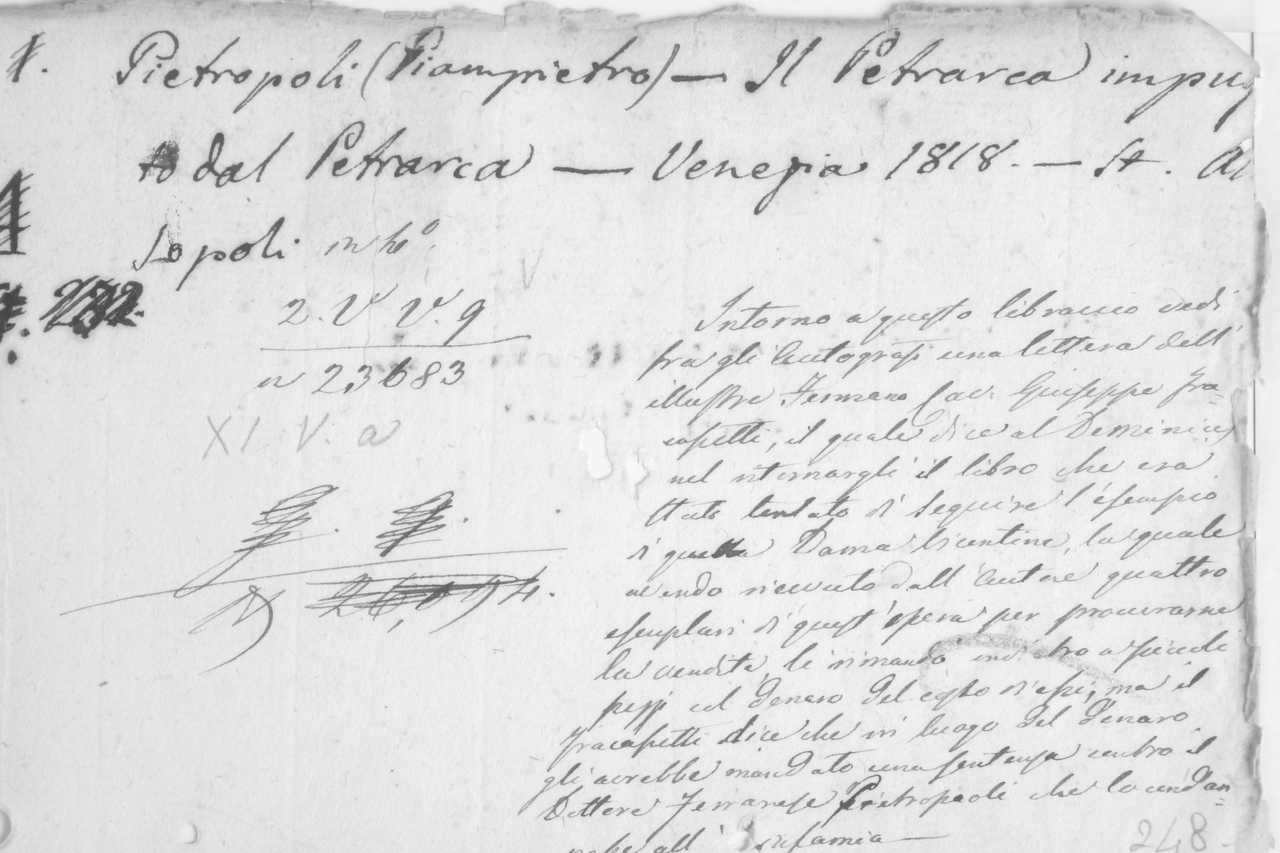 Pietropoli (Giampietro) — Il Petrarca impug
to dal Petrarca — Venezia 1818. — St. Al
sopoli in 4º.
2. V V. 9
n 23683
XI V. a
Intorno a questo libraccio vedi
fra gli autografi una lettera dell'
illustre Fermano Cav. Giuseppe Fra-
cassetti, il quale dice al Deminicis
nel ritornargli il libro che era
stato tentato di seguire l'esempio
di quella Dama Vicentina, la quale
avendo ricevuto dall'autore quattro
esemplari di quest'opera per procurarne
la vendita, li rimandò indietro a piccoli
pezzi col denaro del costo di essi, ma il
Fracassetti dice che in luogo del denaro
gli avrebbe mandato una sentenza contro il
Dottore Pietropoli che lo condan-
all' infamia —
248